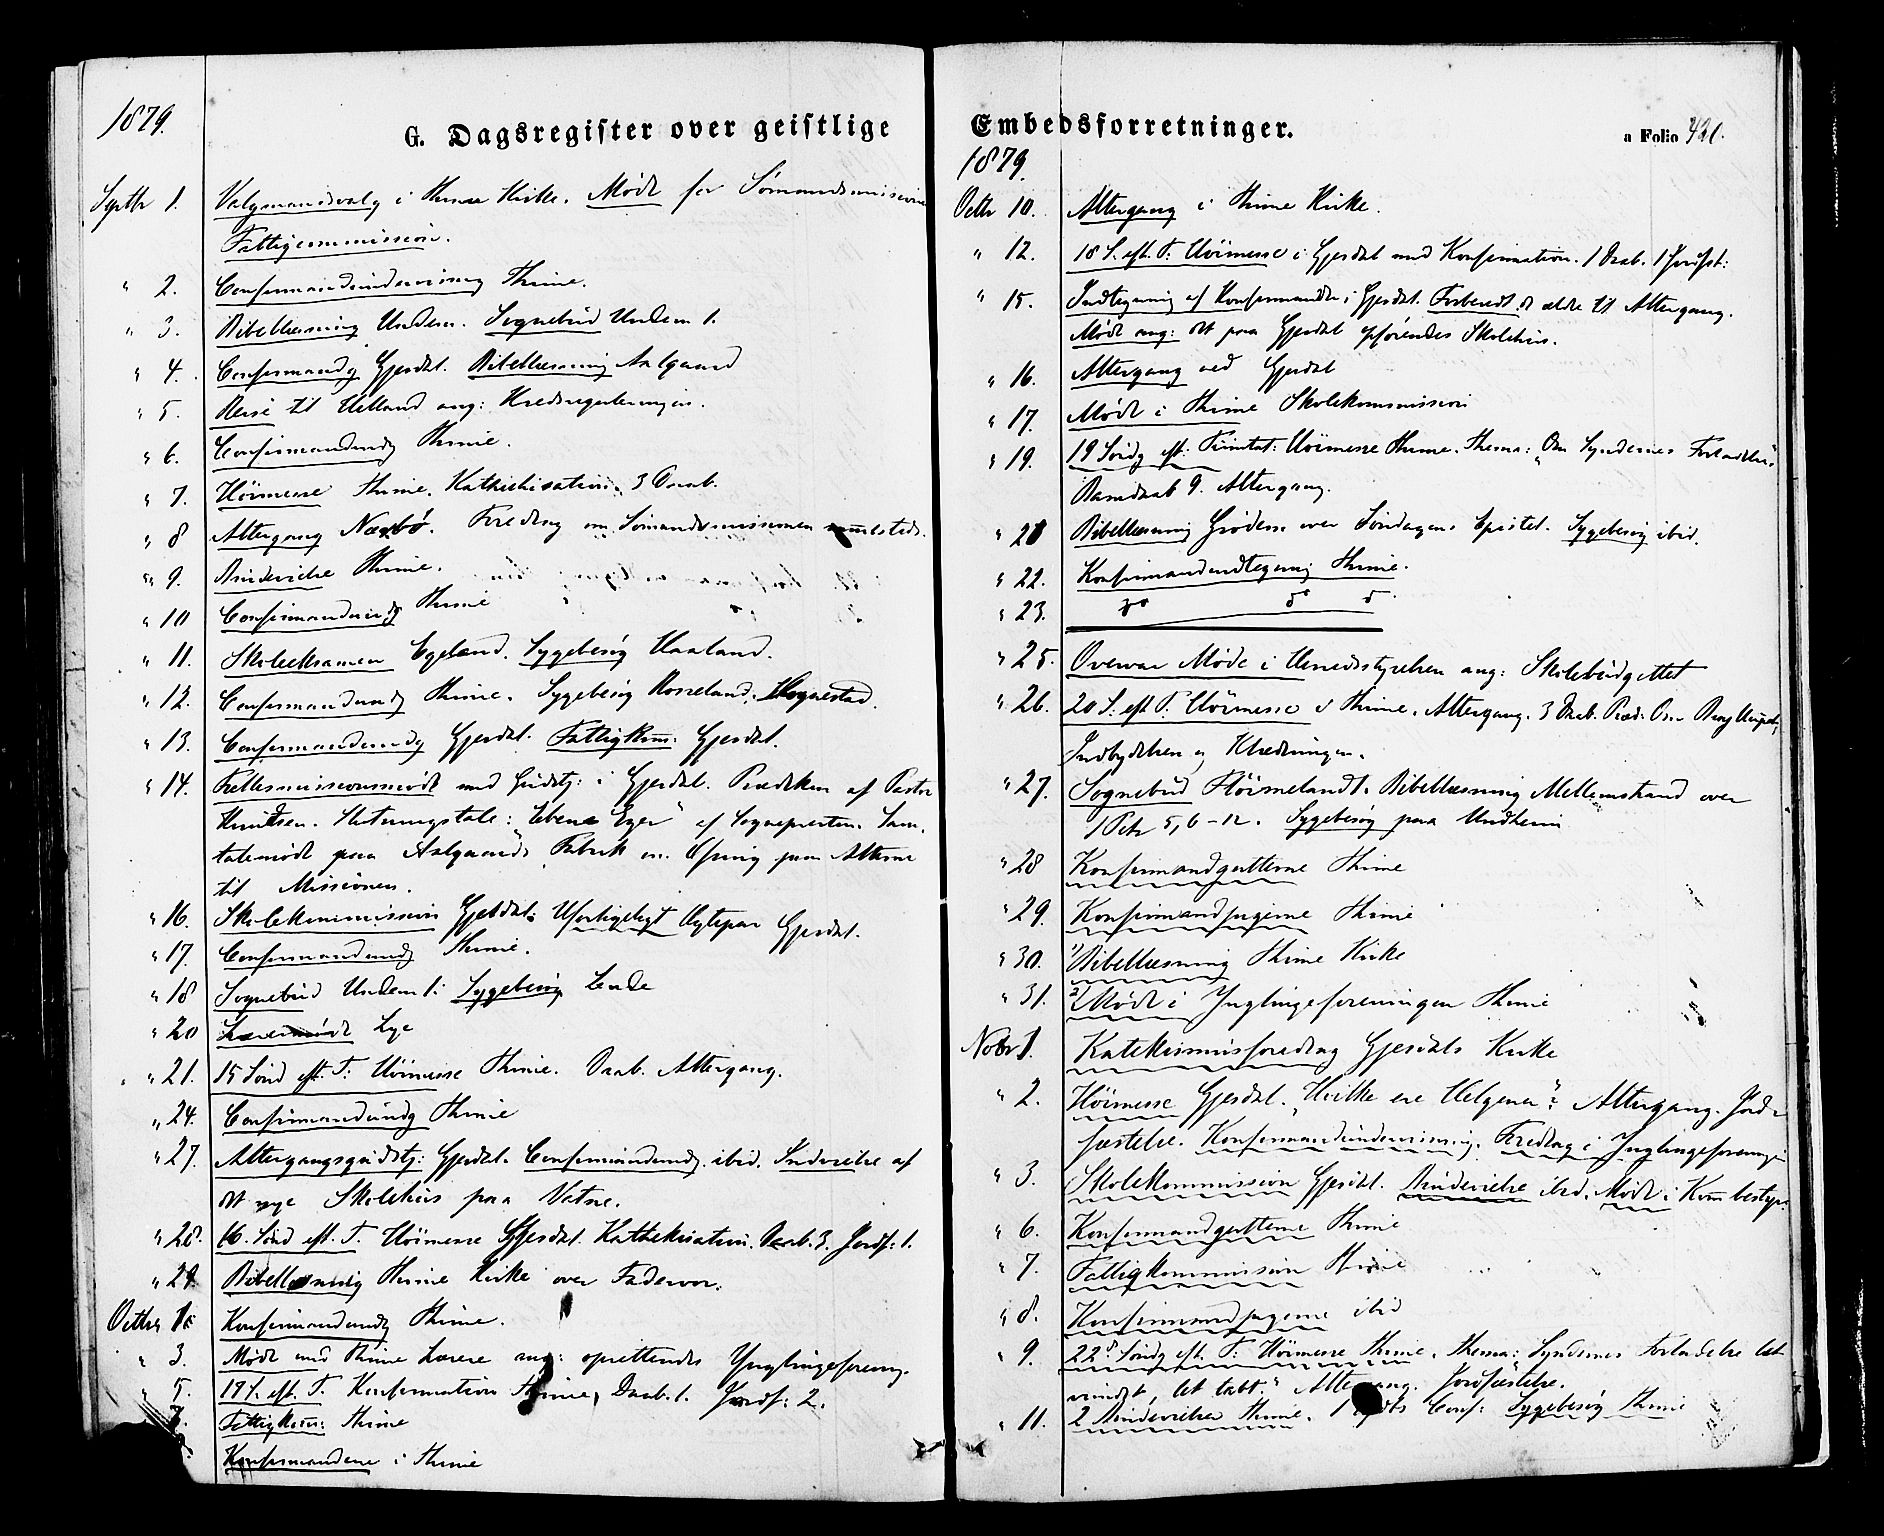 1879.
G. Dagsregister over geistlige
Septbr 1. Valgmandsvalg i Thime Kirke. Møde for Sømandsmissionen
Fattigcommission.
" 2. Confirmandundervisning Thime.
" 3. Bibellæsning Undem. Sognebud Undem 1.
" 4. Confirmandg Gjesdal. Bibellæsning Aalgaard
" 5. Reise til Helland ang: Kredsreguleringen.
" 6. Confirmandundg Thime.
" 7. Høimesse Thime. Kathekisation. 3 Daab.
" 8 Altergang Nærbø. Foredrag om Sømandsmissionen sammesteds.
" 9. Brudevielse Thime.
" 10 Confirmandundg Thime
" 11. Skoleeksamen Egeland. Sygebesøg Haaland.
" 12. Confirmandundg Thime. Sygebesøg Rosseland. Hognestad.
" 13. Confirmandundg Gjesdal. Fattigkom: Gjesdal.
" 14. Fællesmissionsmøde med Gudstj: i Gjesdal. Prædiken af Pastor
Knudsen. Slutningstale: "Eben Ezer" af Sognepresten. Sam-
talemøde paa Aalgaards Fabrik om Ofring paa Alterne
til Missionen.
" 16. Skolekommission Gjesdal. Uforligeligt Ægtepar Gjesdal.
" 17. Confirmandundg Thime.
" 18 Sognebud Undem 1. Sygebesøg Lende
" 20 Lærermøde Lye
" 21. 15 Sønd eft. T: Høimesse Thime. Daab. Altergang.
" 24. Confirmandundg Thime
" 27. Altergangsgudstj: Gjesdal. Confirmandundg. ibid. Indvielse af
det nye Skolehus paa Vatne.
" 28. 16. Sønd eft. T. Høimesse Gjesdal. Kathekisation. Daab. 3. Jordf: 1.
" 29. Bibellæsning Thime Kirke over Fadervor.
Octbr 1. Konfirmandundg Thime.
" 3. Møde med Thime Lærere ang: oprettendes Ynglingeforening.
" 5. 17 S. eft. T. Konfirmation Thime, Daab. 1. Jordf: 2.
7. Fattigkom: Thime
Konfirmandene i Thime
Embedsforretninger.
a Folio 420.
1879.
Octbr 10. Altergang i Thime Kirke.
" 12. 18 S. eft. T. Høimesse i Gjesdal med Konfirmation. 1 Daab. 1 Jordfst:
" 15. Indtegning af Konfirmander i Gjesdal. Forberedt d. ældre til Altergang.
Møde ang: det paa Gjesdal opførendes Skolehus.
" 16. Altergang ved Gjesdal
" 17. Møde i Thime Skolekommission
" 19. 19 Søndg eft. Trinitat: Høimesse Thime. Thema: "Om Syndernes Forladelse"
Barnedaab 9. Altergang.
" 20 Bibellæsning Grødem over Søndagens Epistel. Sygebesøg ibid.
" 22. Konfirmandindtegning Thime.
" 23. do do do
" 25. Overvar Møde i Herredsstyrelsen ang: Skolebudgettet
" 26. 20 S. eft T. Høimesse i Thime. Altergang. 3 Daab. Præd: Om
Indbydelsen og Klædningen.
" 27. Sognebud Høimelandt. Bibellæsning Mellemstrand over
1 Petr 5, 6–12. Sygebesøg paa Undheim
" 28 Konfirmandgutterne Thime
" 29. Konfirmandpigerne Thime
" 30. 1) Bibellæsning Thime Kirke
" 31. 2) Møde i Ynglingeforeningen Thime
Novbr 1. Katekismusforedrag Gjesdals Kirke
" 2. Høimesse Gjesdal. "Hvilke ere Helgener"? Altergang. Jord-
fæstelse. Konfirmandundervisning. Foredrag i Ynglingeforening
" 3. Skolekommission Gjesdal. Brudevielse ibid. Møde i Kom bestyr.
" 6. Konfirmandgutterne Thime
" 7. Fattigkommission Thime
" 8. Konfirmandpigerne ibid
" 9. 22d Søndg eft. T. Høimesse Thime. Thema: "Syndernes Forladelse let
vundet, let tabt." Altergang. Jordfæstelse.
" 11. 2 Brudevielser Thime. 1 Conf: Sygebesøg Thime